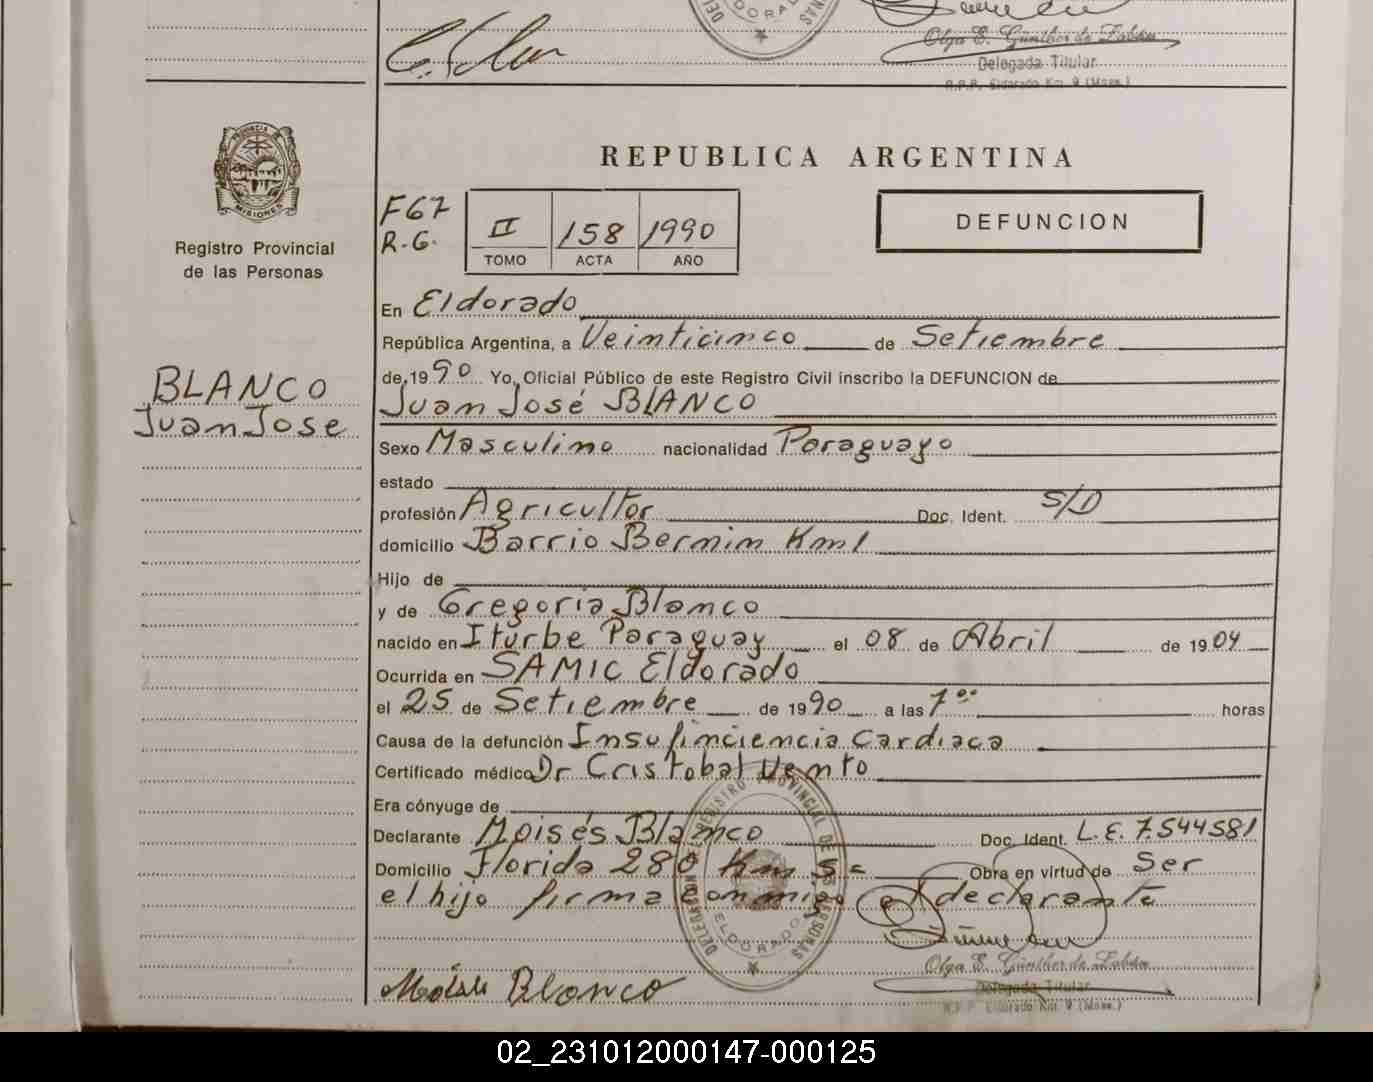 DELE
ELDORAD
NAS
Olga E. Günther de Zabén
Delegada Titular
R.P.P. Eldorado Km. 9 (Mnes.)
PROVINCIA DE
MISIONES
Registro Provincial
de las Personas
BLANCO
Juan Jose
REPUBLICA ARGENTINA
F67
R.G.
II 158 1990
TOMO ACTA AÑO
DEFUNCION
En Eldorado
República Argentina, a Veinticinco de Setiembre
de 1990 Yo, Oficial Público de este Registro Civil inscribo la DEFUNCION de
Juan José BLANCO
Sexo Masculino nacionalidad Paraguayo
estado
profesión Agricultor Doc. Ident. S/D
domicilio Barrio Bernim Km1
Hijo de
y de Gregoria Blanco
nacido en Iturbe Paraguay el 08 de Abril de 1904
Ocurrida en SAMIC Eldorado
el 25 de Setiembre de 1990 a las 7°° horas
Causa de la defunción Insufinciencia Cardiaca
Certificado médico Dr Cristobal Vento
Era cónyuge de
Declarante Moisés Blanco Doc. Ident. L.E. 7.544581
Domicilio Florida 280 Km 9 Obra en virtud de Ser
el hijo firma conmigo el declarante
DELEGACION REGISTRO PROVINCIAL DE LAS PERSONAS
ELDORADO
Moisés Blanco
Olga E. Günther de Zabén
Delegada Titular
R.P.P. Eldorado Km. 9 (Mnes.)
02_231012000147-000125